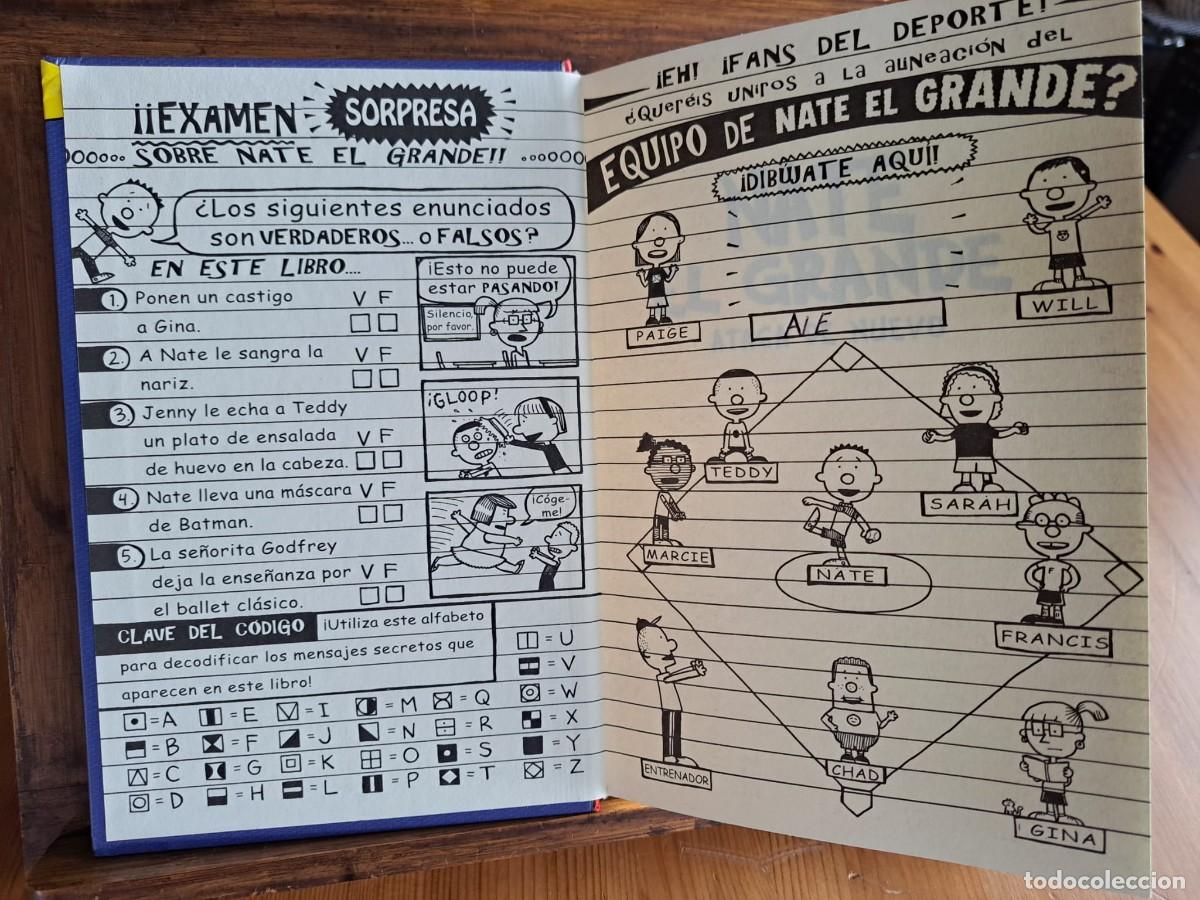 ¡¡EXAMEN SORPRESA
SOBRE NATE EL GRANDE!!
¿Los siguientes enunciados
son VERDADEROS... o FALSOS?
EN ESTE LIBRO....
1. Ponen un castigo V F
a Gina.
2. A Nate le sangra la V F
nariz.
3. Jenny le echa a Teddy
un plato de ensalada V F
de huevo en la cabeza.
4. Nate lleva una máscara V F
de Batman.
5. La señorita Godfrey
deja la enseñanza por V F
el ballet clásico.
¡Esto no puede
estar PASANDO!
Silencio,
por favor.
¡GLOOP!
¡Cóge-
me!
CLAVE DEL CÓDIGO ¡Utiliza este alfabeto
para decodificar los mensajes secretos que
aparecen en este libro!
= A = E = I = M = Q = U
= B = F = J = N = R = V
= C = G = K = O = S = W
= D = H = L = P = T = X
= Y
= Z
¡EH! ¡FANS DEL DEPORTE!
¿QUERÉIS UNIROS A LA ALINEACIÓN DEL
EQUIPO DE NATE EL GRANDE?
¡DIBÚJATE AQUÍ!
PAIGE
WILL
ALE
TEDDY
SARAH
MARCIE
NATE
FRANCIS
ENTRENADOR
CHAD
GINA
todocoleccion